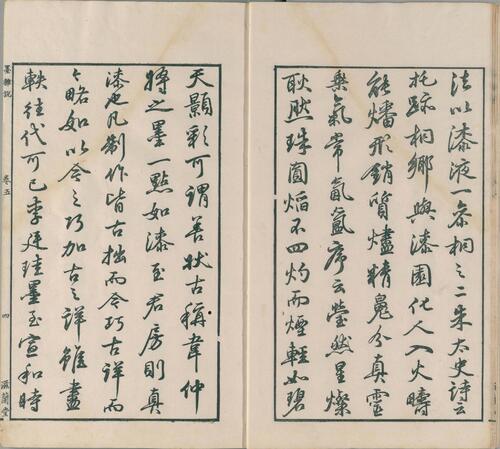 法以漆液一分桐之二朱太史詩云
托踪桐鄉與漆園化人入火疇
能燔形銷質燼精魂分真靈
氣常氤氳序云瑩然星燦
耿然珠圓焰不四灼而煙輕如碧
天顥彩可謂善狀古稱韋仲
將之墨一點如漆至君房則真
漆也凡制作皆古拙而今巧古詳而
今略如以今之巧加古之詳雖盡
軼往代可已李廷珪墨至宣和時
墨雜說 卷五 四 滋蘭堂